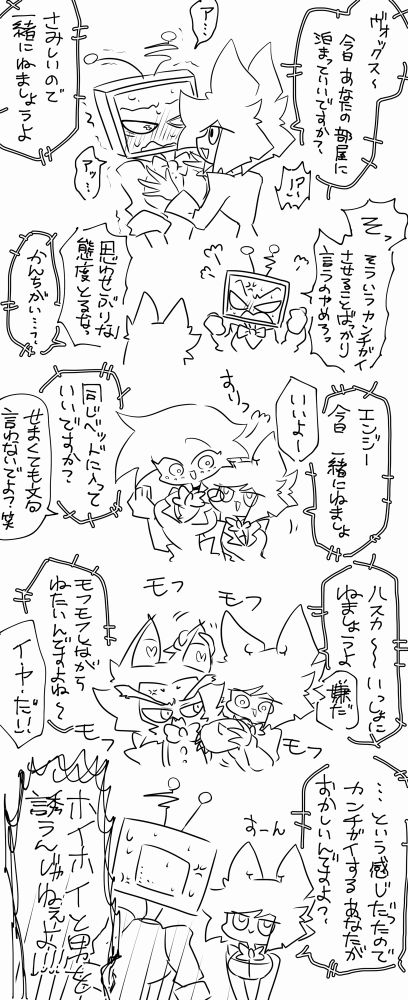 ヴォックス〜
今日 あなたの 部屋に
泊まっていいですか？
ア…
さみしいので
一緒にねましょうよ
アッ…
!?
そういう カンチガイ
させることばっかり
言うのヤメろっ
思わせぶりな
態度とるな。
かんちがい…？
エンジー
今日 一緒にねましょ
いいよー
すりっ
同じベッドに入って
いいですか？
せまくても文句
言わないでよ？笑
ハスカ〜〜 いっしょに
ねましょうよ
嫌だ
モフ
モフ
モフモフしながら
ねたいんですよね〜
イヤーだ!!
モフ
モフ
…という感じだったので
カンチガイする あなたが
おかしいんですよ？
すーん
ホイホイと男を
誘うんじゃねぇよ!!!